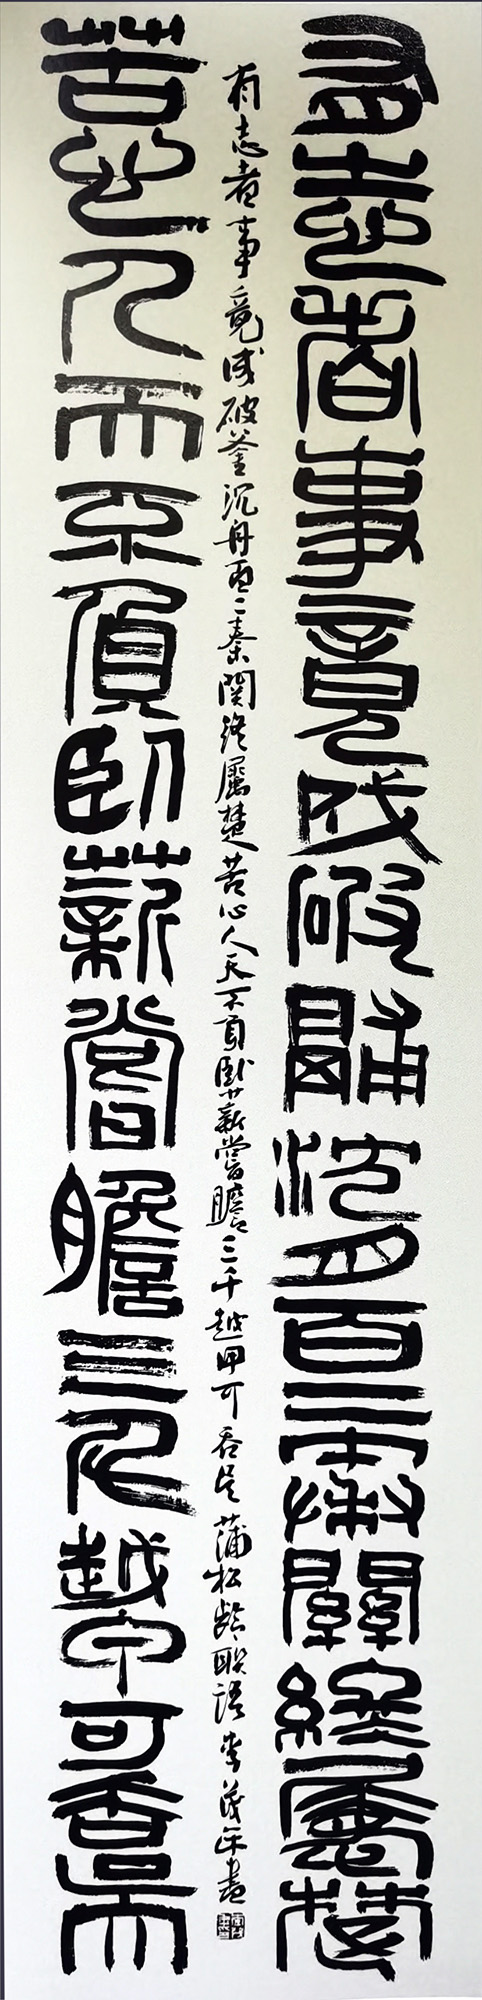 有志者事竟成破鬴沉舟百二秦關終屬楚
有志者事竟成破釜沉舟百二秦関終屬楚苦心人天不負臥薪嘗膽三千越甲可吞吳蒲松齡聯語李茂平書
苦心人天不負臥薪嘗膽三千越甲可吞吳